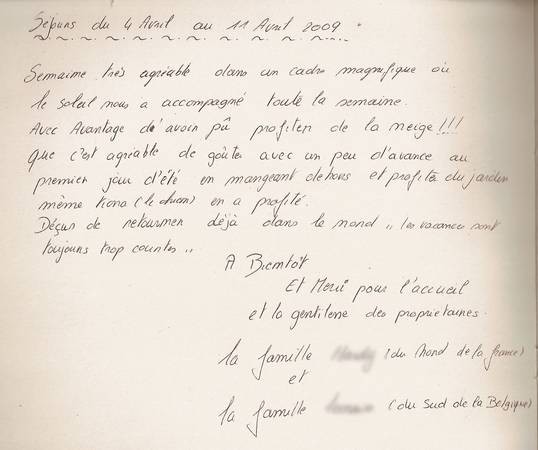 Séjours du 4 Avril au 11 Avril 2009
Semaine très agriable dans un cadre magnifique où
le soleil nous a accompagné toute la semaine.
Avec Avantage d'avoir pû profiter de la neige !!!
Que c'est agriable de goûter avec un peu d'avance au
premier jour d'été en mangeant dehors et profiter du jardin
même Kiona (le chien) en a profité.
Déçus de retourner déjà dans le nord ,, les vacances sont
toujours trop courtes ,,
A Bientôt
Et Merci pour l'accueil
et la gentilesse des proprietaires.
la famille (du Nord de la france)
et
la famille (du Sud de la Belgique)